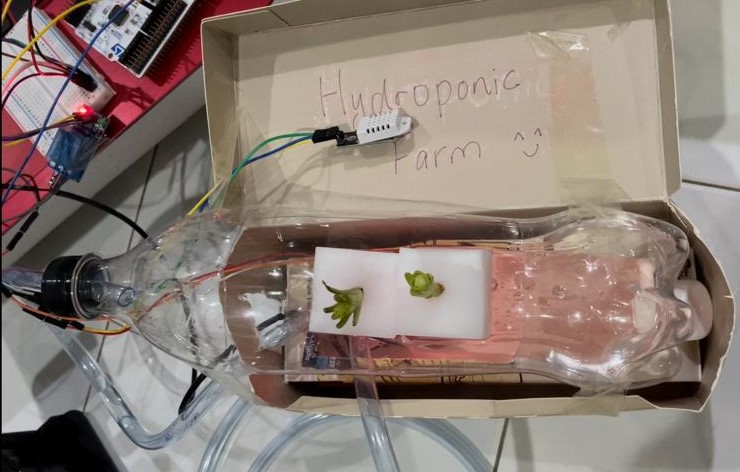 Hydroponic
Farm